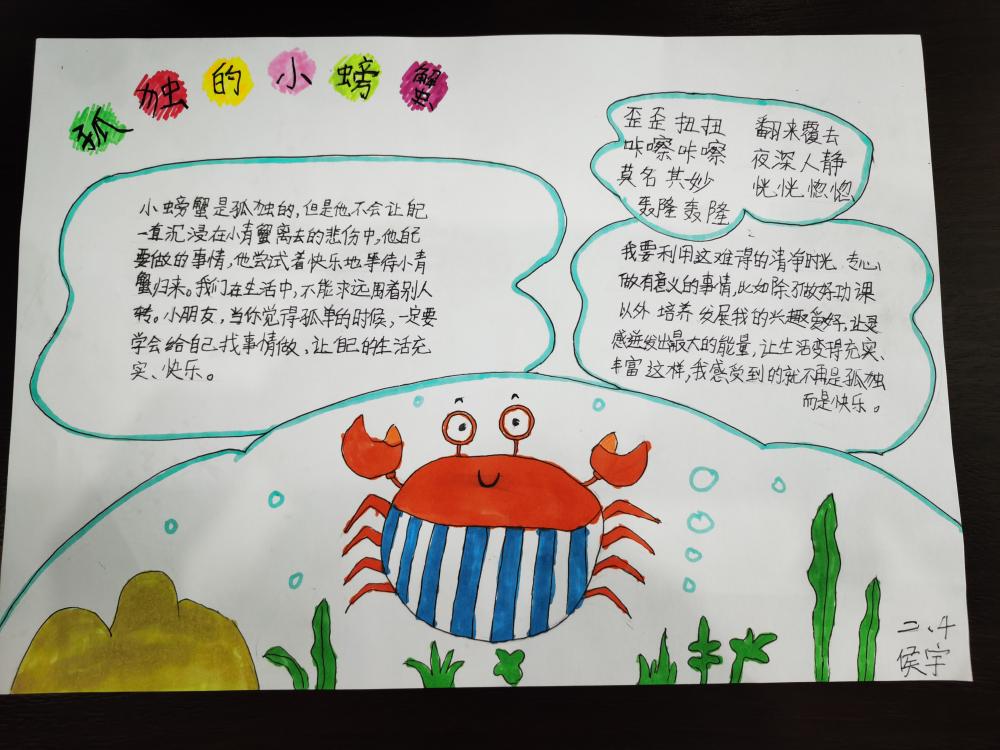 孤独的小螃蟹
小螃蟹是孤独的,但是他不会让自己
一直沉浸在小青蟹离去的悲伤中,他自己
要做的事情,他尝试着快乐地等待小青
蟹归来。我们在生活中,不能永远围着别人
转。小朋友,当你觉得孤单的时候,一定要
学会给自己找事情做,让自己的生活充
实、快乐。
歪歪扭扭 翻来覆去
咔嚓咔嚓 夜深人静
莫名其妙 恍恍惚惚
轰隆轰隆
我要利用这难得的清净时光,专心
做有意义的事情,比如除了做好功课
以外 培养发展我的兴趣爱好,让
感迸发出最大的能量,让生活变得充实、
丰富 这样,我感受到的就不再是孤独
而是快乐。
二、4
侯宇